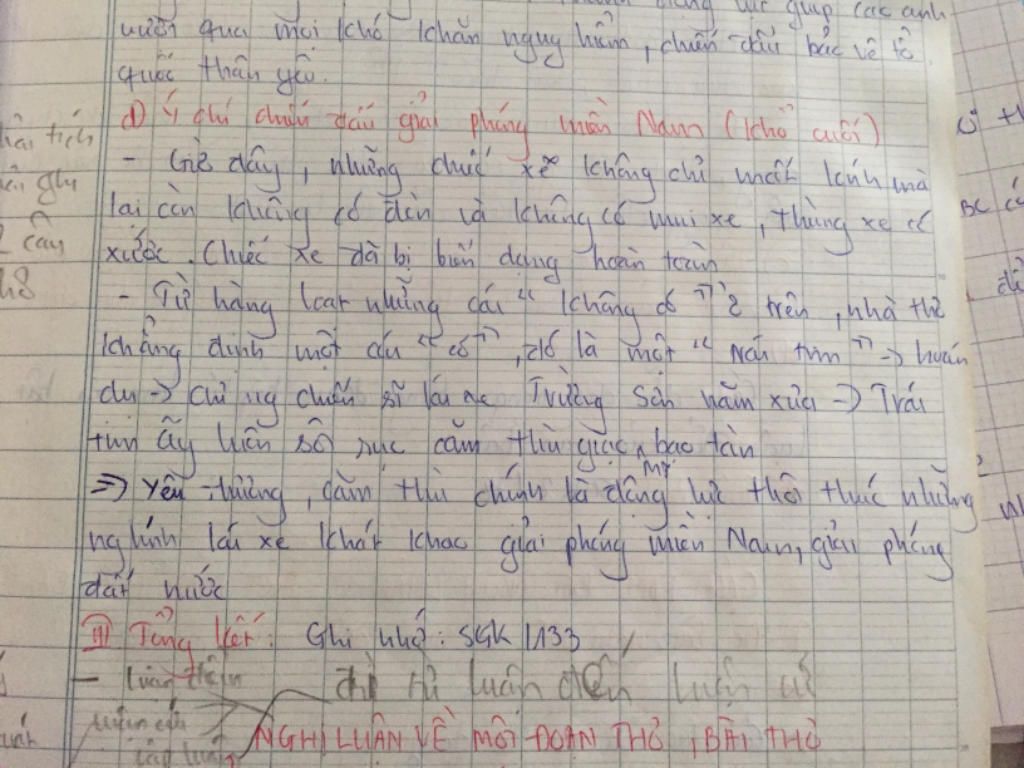 giúp các anh
vượt qua mọi khó khăn nguy hiểm, chiến đấu bảo vệ tổ
quốc thân yêu.
d) Ý chí chiến đấu giải phóng miền Nam (khổ cuối)
- Giờ đây, những chiếc xe không chỉ mất kính mà
lại còn không có đèn và không có mui xe, thùng xe có
xước. Chiếc xe đã bị biến dạng hoàn toàn
- Từ hàng loạt những cái "không có" ở trên, nhà thơ
khẳng định một cái "có", đó là một "trái tim" -> hoán
dụ -> chỉ ng chiến sĩ lái xe Trường Sơn năm xưa -> Trái
tim ấy luôn sôi sục căm thù giặc Mỹ bạo tàn
=> Yêu thương, căm thù chính là động lực thôi thúc những
ng lính lái xe khát khao giải phóng miền Nam, giải phóng
đất nước
III Tổng kết: Ghi nhớ: SGK/133
- luận điểm
luận cứ
NGHỊ LUẬN VỀ MỘT ĐOẠN THƠ, BÀI THƠ